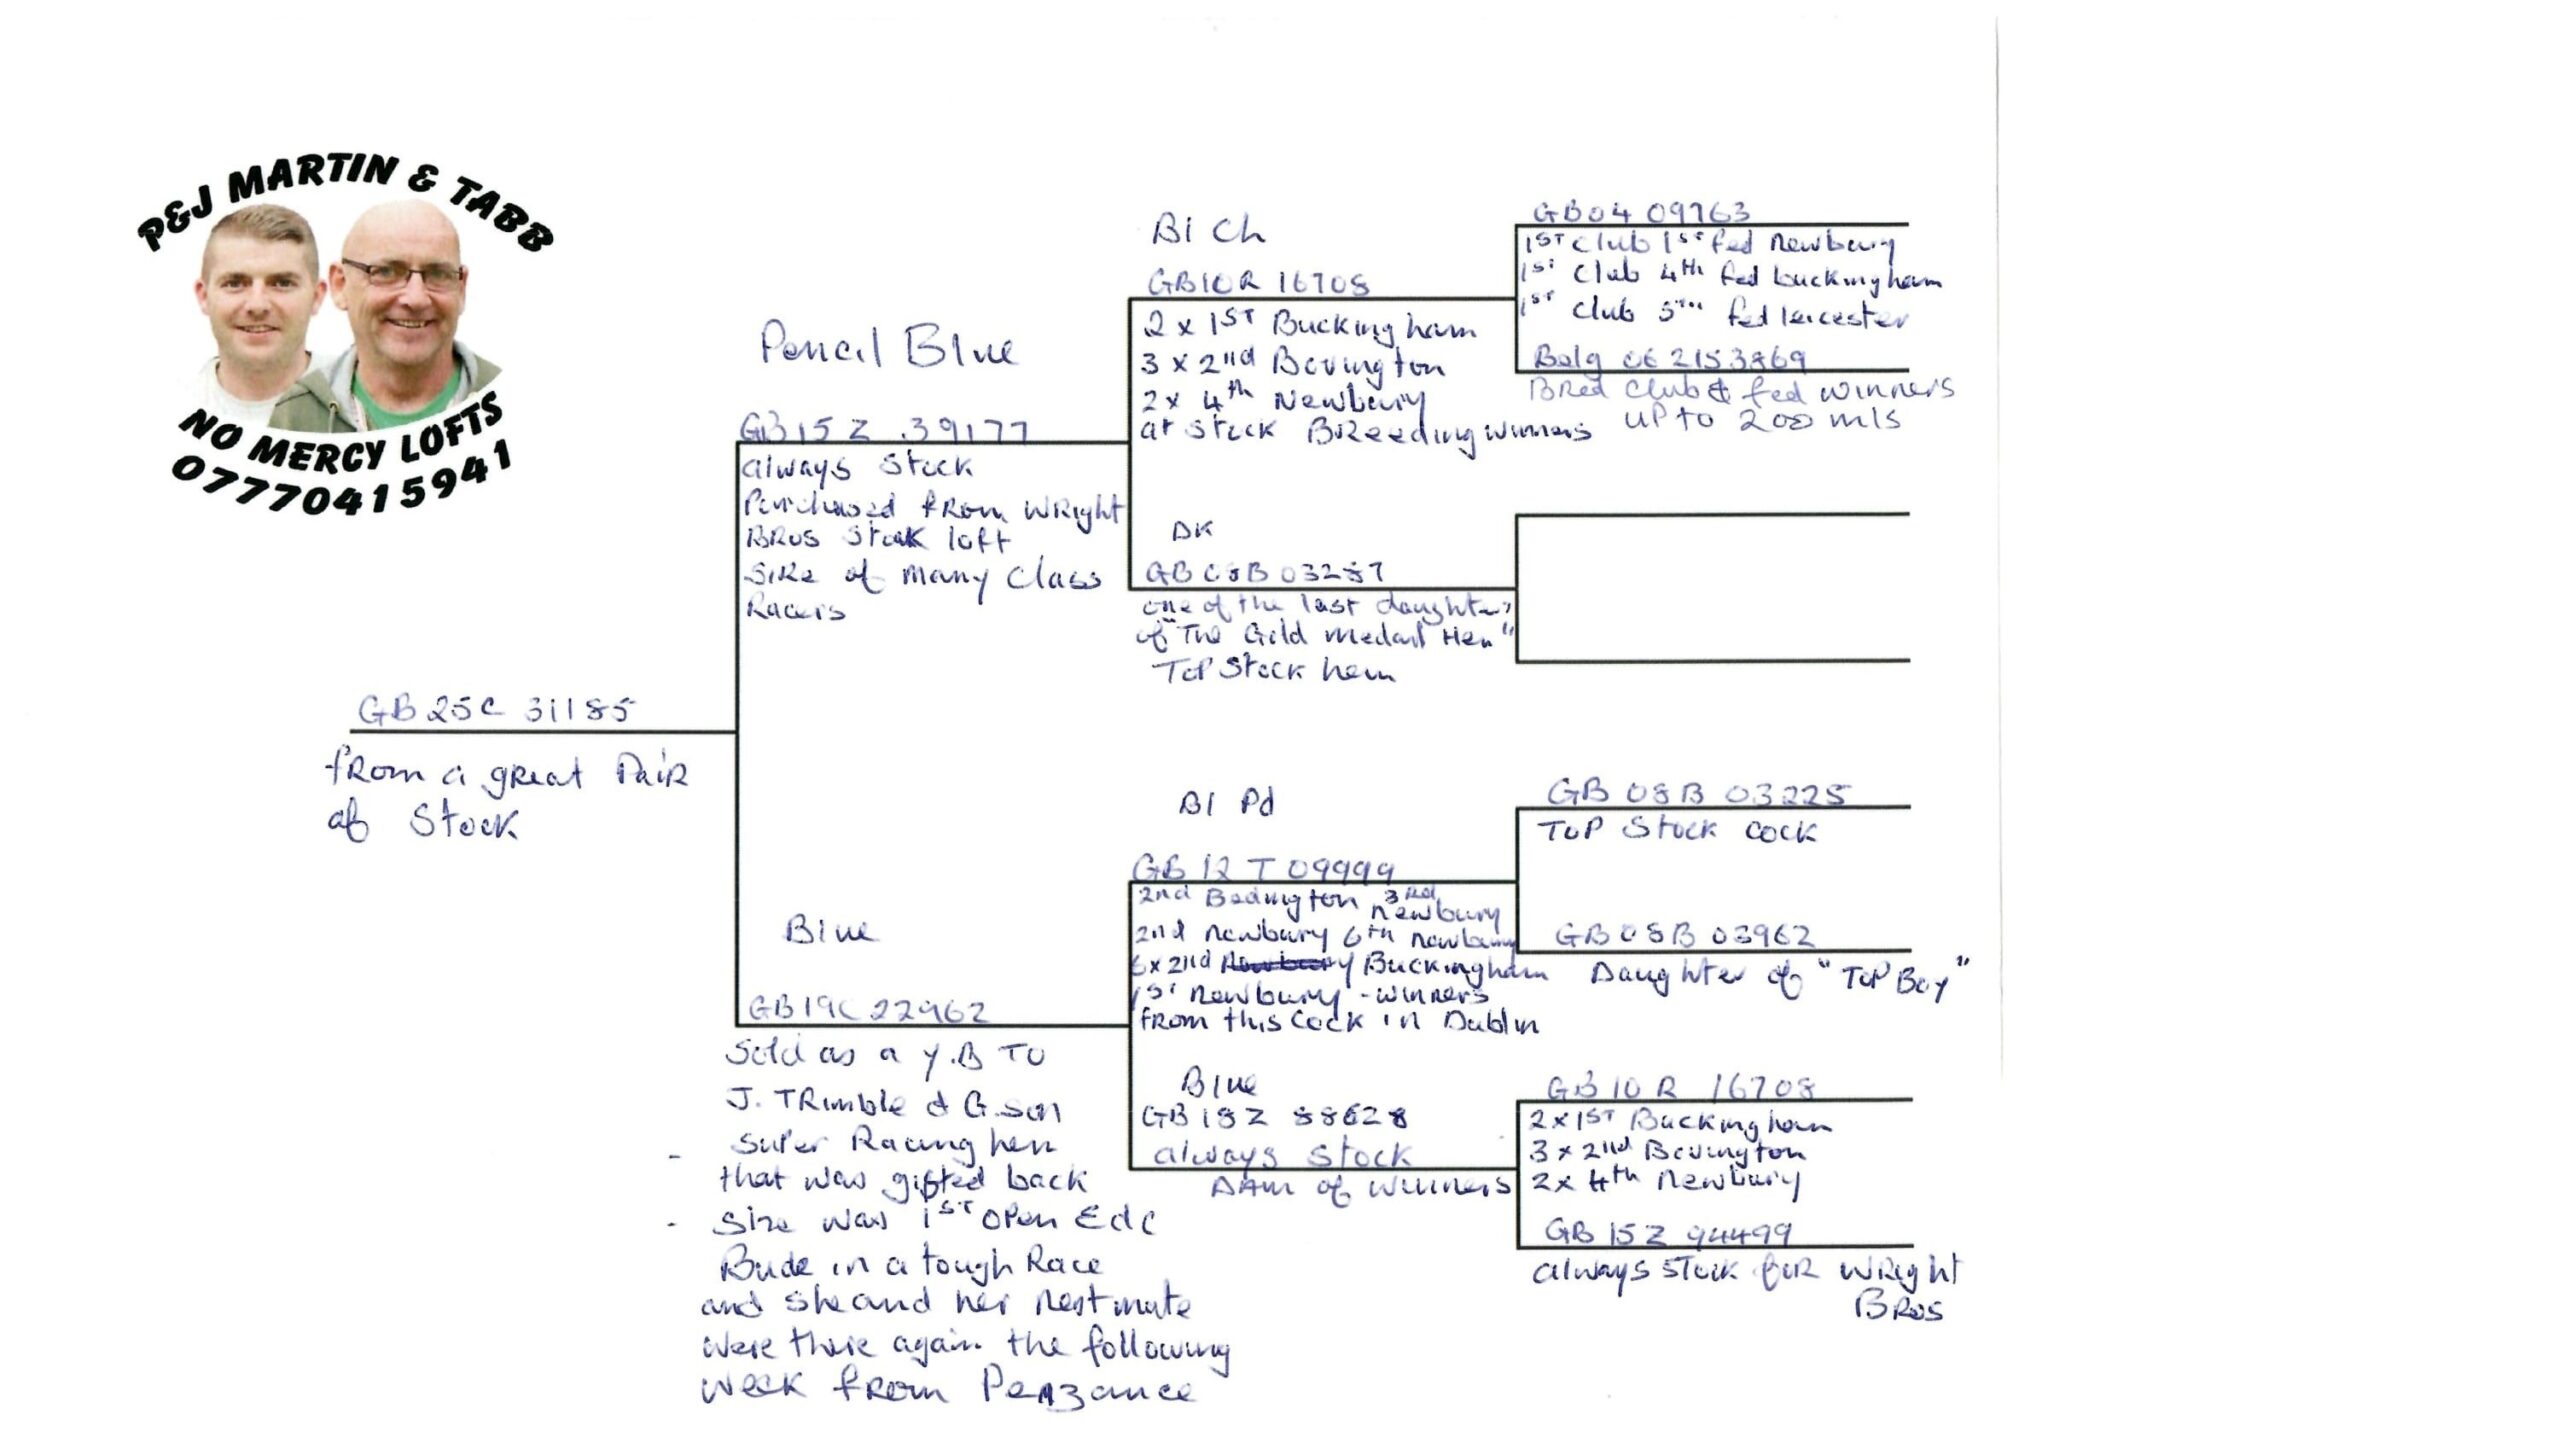 P&J MARTIN & TABB
NO MERCY LOFTS
07770415941
GB 25C 31185
from a great Pair
of Stock
Pencil Blue
GB 15 Z 39177
always stock
Purchased from Wright
Bros Stock loft
Sire of many Class
Racers
Blue
GB 19C 22962
Sold as a Y.B To
J. Trimble & G.son
Super Racing hen
- that was gifted back
- Sire was 1st Open Edc
Bude in a tough Race
and she and her nestmate
were there again the following
week from Penzance
Bl Ch
GB10R 16708
2 x 1ST Buckingham
3 x 2nd Bovington
2 x 4th Newbury
at stock Breeding winners
DK
GB 08B 03287
one of the last daughters
of "The Gold medal Hen"
Top Stock hen
Bl Pd
GB 12 T 09999
2nd Bovington 3rd Newbury
2nd newbury 6th newbury
6x 2nd Buckingham
1st Newbury - winners
from this Cock in Dublin
Blue
GB 18Z 88628
always stock
Dam of winners
GB04 09763
1ST club 1st fed newbury
1st club 4th fed buckingham
1st club 5th fed leicester
Belg 06 2153869
Bred club & fed winners
up to 200 mls
GB 08B 03225
Top Stock cock
GB 08B 03962
Daughter of "Top Boy"
GB 10 R 16708
2x1ST Buckingham
3 x 2nd Bovington
2x 4th Newbury
GB 15Z 94499
always stock for Wright
Bros